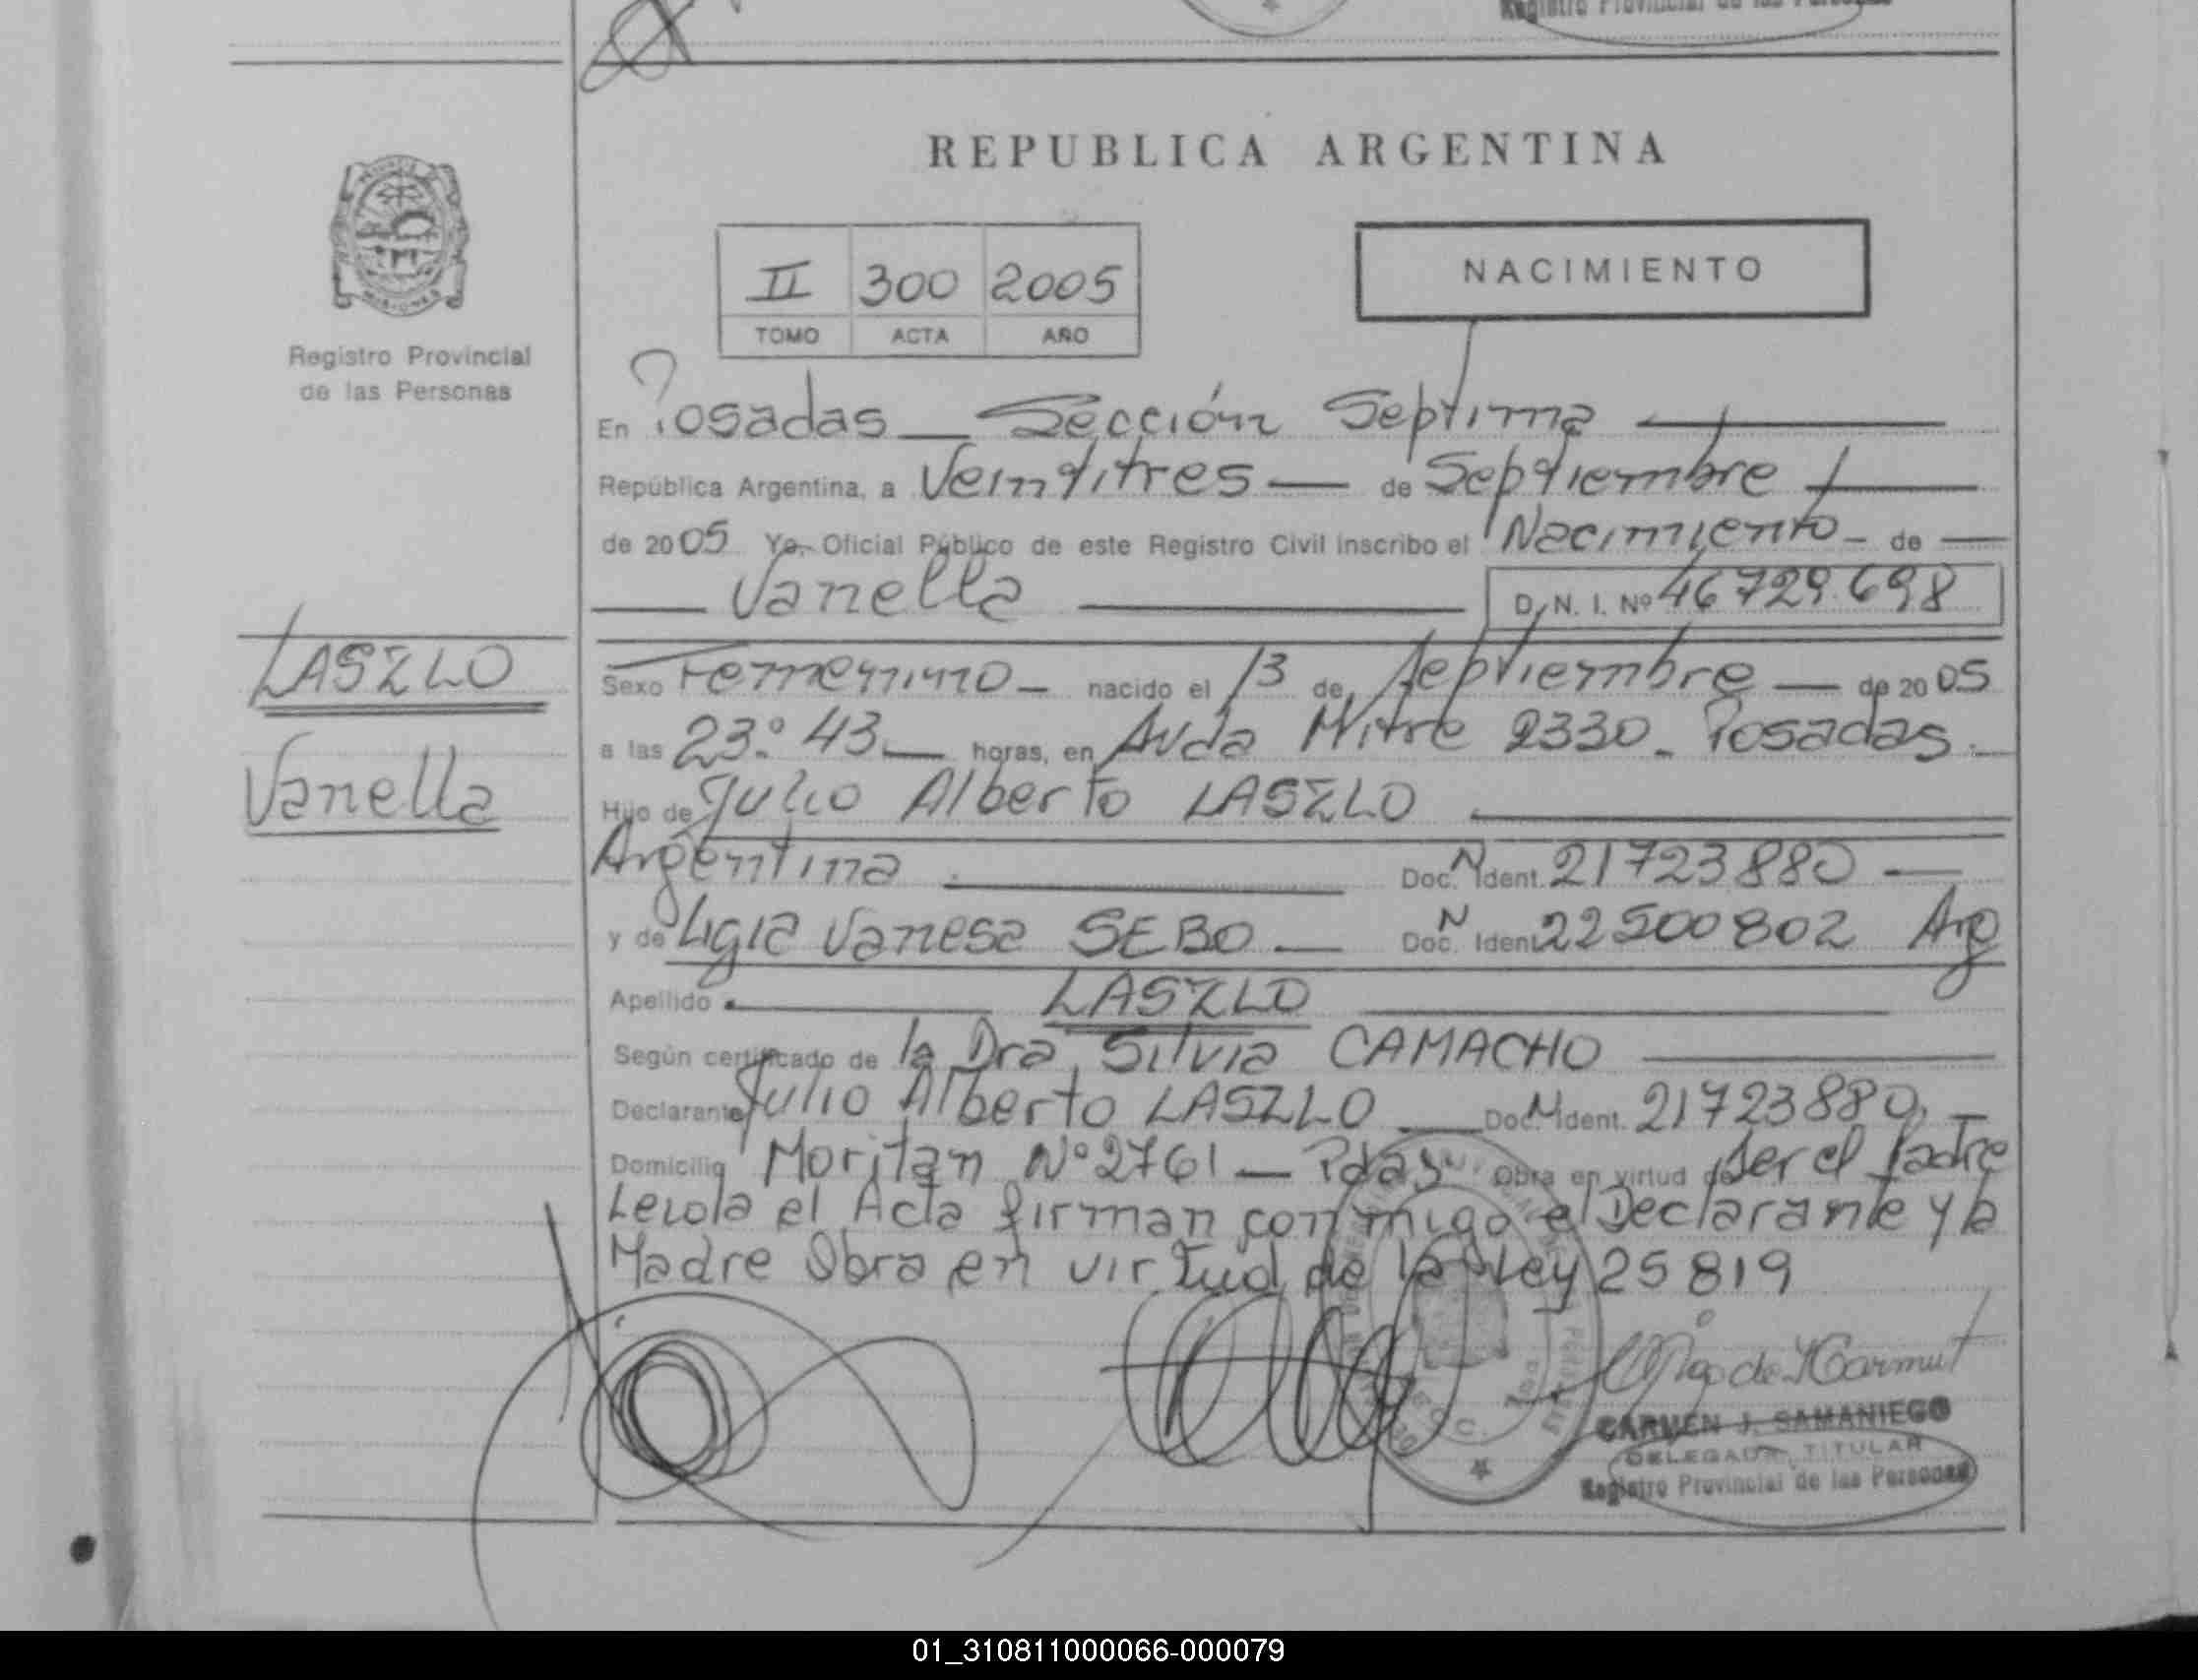 Registro Provincial de las Personas
REPUBLICA ARGENTINA
MISIONES
Registro Provincial
de las Personas
II 300 2005
TOMO ACTA AÑO
NACIMIENTO
En Posadas — Sección Septima —
República Argentina, a Veintitres — de Septiembre —
de 2005 Yo, Oficial Público de este Registro Civil inscribo el Nacimiento - de —
— Vanella — D. N. I. Nº 46729.698
LASZLO
Vanella
Sexo Femenino — nacido el 13 de Septiembre — de 2005
a las 23:43 — horas, en Avda Mitre 2330 - Posadas. —
Hijo de Julio Alberto LASZLO —
Argentina — Doc. N Ident. 21723880 —
y de Ligia Vanesa SEBO — Doc. N Ident. 22500802 Arg
Apellido — LASZLO —
Según certificado de la Dra Silvia CAMACHO —
Declarante Julio Alberto LASZLO — Doc. N Ident. 21723880, —
Domicilio Moritan Nº 2761 — Pdas Obra en virtud de Ser el Padre
Leida el Acta firman conmigo el Declarante y la
Madre Obra en virtud de la Ley 25819
CARMEN J. SAMANIEGO
DELEGADA TITULAR
Registro Provincial de las Personas
01_310811000066-000079